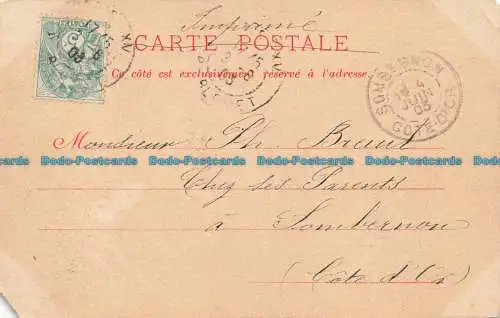 Imprimé
CARTE POSTALE
Ce côté est exclusivement réservé à l'adresse
SOMBERNON
4
JUIN
03
COTE-D'OR
Monsieur Ph. Braut
Dodo-Postcards Dodo-Postcards Dodo-Postcards Dodo-Postcards Dodo-Postcards
Chez ses Parents
à Sombernon
(Côte d'Or)